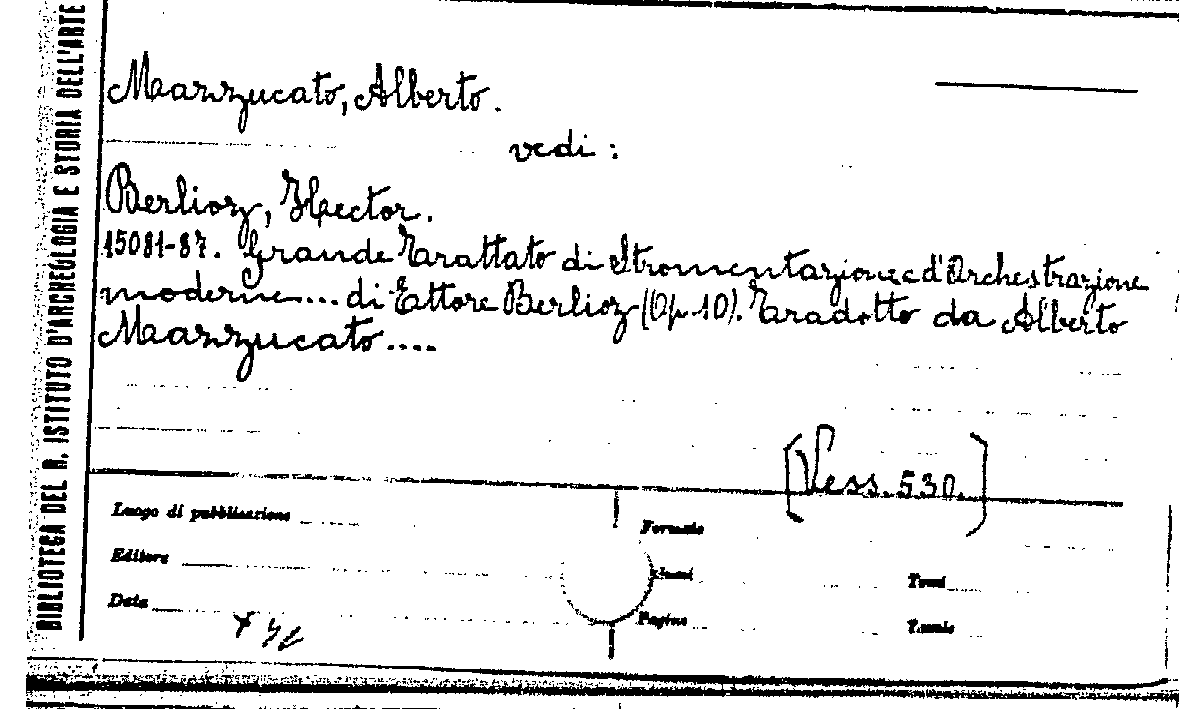 BIBLIOTECA DEL R. ISTITUTO D'ARCHEOLOGIA E STORIA DELL'ARTE
Mazzucato, Alberto.
vedi :
Berlioz, Hector.
15081-87. Grande Trattato di Stromentazione e d'Orchestrazione
moderne.... di Ettore Berlioz (Op. 10). Tradotto da Alberto
Mazzucato ....
[Vess. 530.]
Luogo di pubblicazione
Formato
Editore
Tomi
Data
Pagine
Tavole